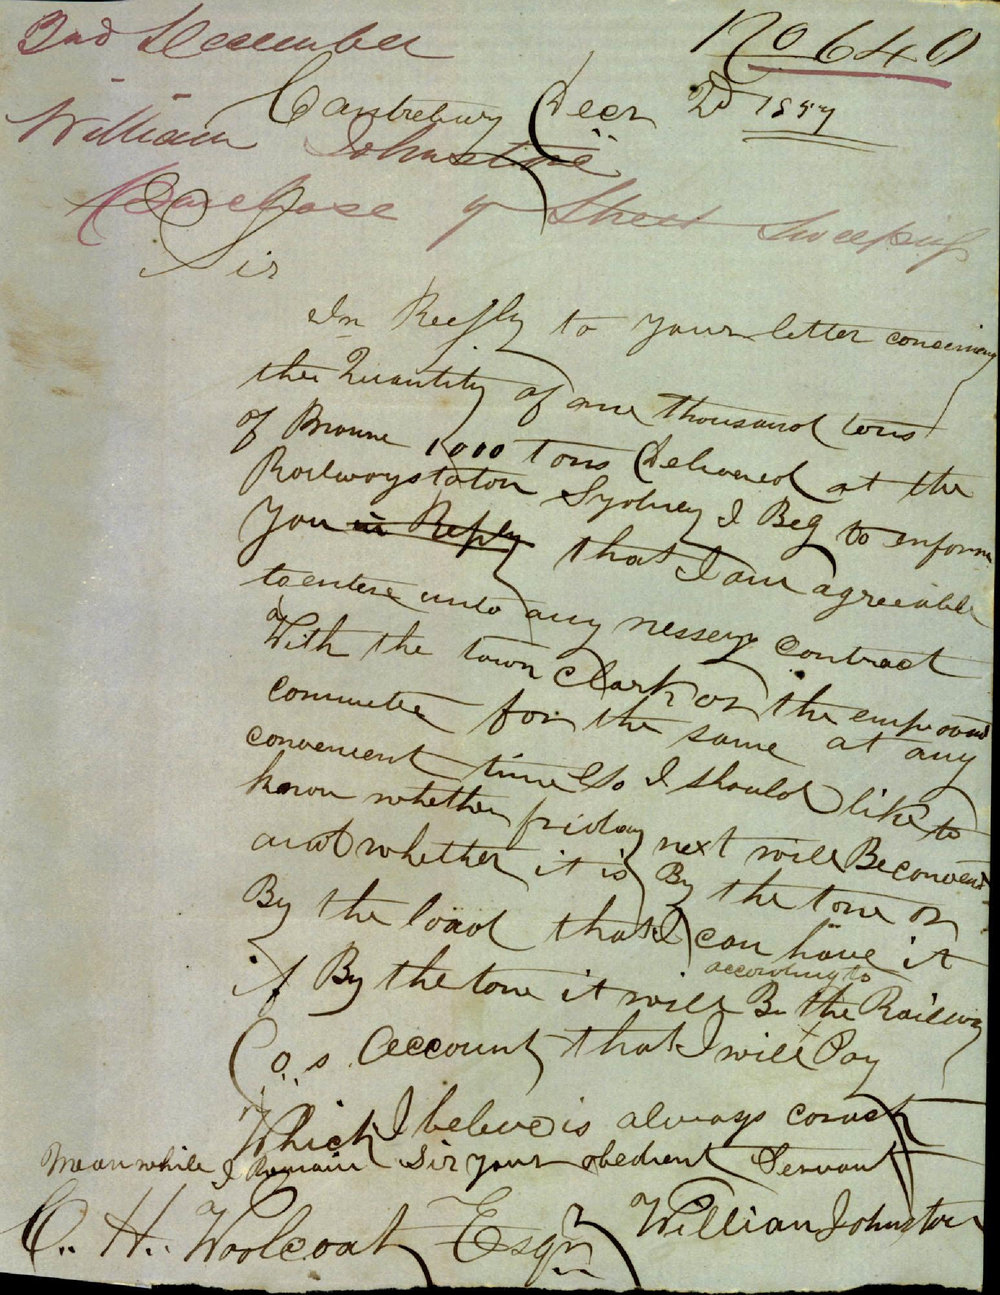 2nd December
No 640
Canterbury Decr 2d 1857
William Johnstone
Purchase of Street Sweepings
Sir
In Reefly to your letter concerning
the Quantity of one thousand tons
of Manure 1000 tons Delivered at the
Railwaystaton Sydney I Beg to inform
you in Reply that I am agreeable
to entere unto any nessery contract
With the town Clark or the empowered
committe for the same at any
convenient time Also I should like to
know whether friday next will Be convent
and whether it is By the tone or
By the load that I can have it
if By the tone it will Be according to the Railway
Co,s Account that I will Pay
Which I beleve is always corract
Mean while I Remain Sir your obedient Servant
William Johnston
C. H. Woolcoat Esqr